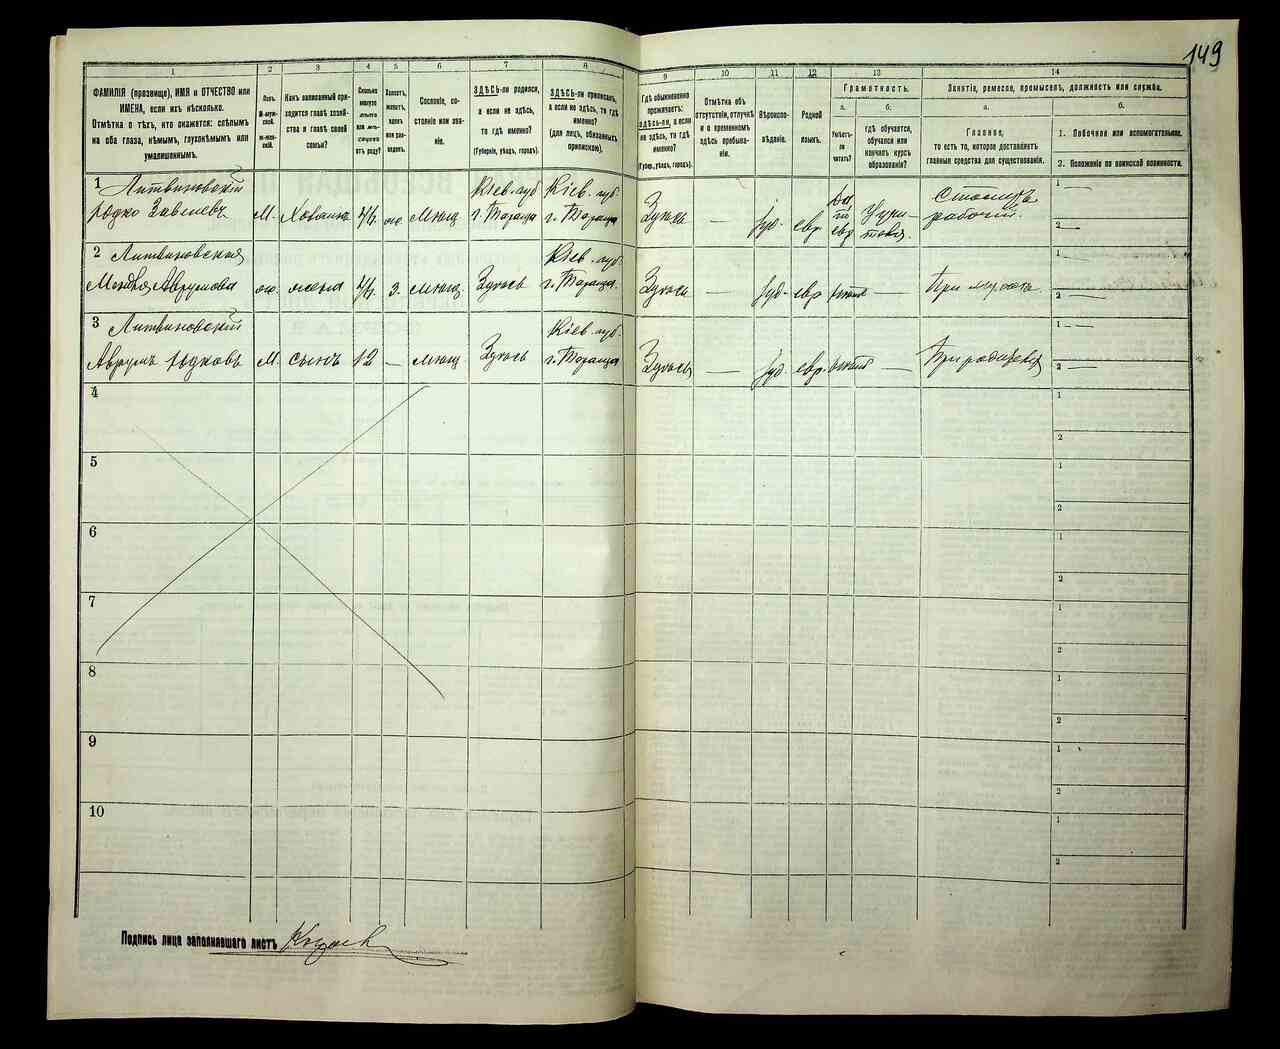 149
1
2
3
4
5
6
7
8
9
10
11
12
13
14
ФАМИЛІЯ (прозвище), ИМЯ и ОТЧЕСТВО или
ИМЕНА, если ихъ нѣсколько.
Отмѣтка о тѣхъ, кто окажется: слѣпымъ
на оба глаза, нѣмымъ, глухонѣмымъ или
умалишеннымъ.
Полъ.
М-муж-
ской.
Ж-жен-
скій.
Какъ записанный при-
ходится главѣ хозяй-
ства и главѣ своей
семьи?
Сколько
минуло
лѣтъ
отъ роду?
Холостъ,
женатъ,
вдовъ
или раз-
веденъ.
Сословіе, со-
стояніе или зва-
ніе.
ЗДѢСЬ-ли родился,
а если не здѣсь,
то гдѣ именно?
(Губернія, уѣздъ, городъ).
ЗДѢСЬ-ли приписанъ,
а если не здѣсь, то гдѣ
именно?
(Для лицъ, обязанныхъ
припискою).
Гдѣ обыкновенно
проживаетъ:
здѣсь-ли, а если
не здѣсь, то гдѣ
именно?
(Губер., уѣздъ, городъ).
Отмѣтка объ
отсутствіи, отлучкѣ
и о временномъ
здѣсь пребыва-
ніи.
Вѣроиспо-
вѣданіе.
Родной
языкъ.
Грамотность.
а.
Умѣетъ-
ли
читать?
б.
гдѣ обучается,
обучался или
кончилъ курсъ
образованія?
Занятія, ремесло, промыселъ, должность или служба.
а.
Главное,
то есть то, которое доставляетъ
главныя средства для существованія.
б.
1. Побочное или вспомогательное.
2. Положеніе по воинской повинности.
1 Литвиновскій М. 4/1 Мѣщ. Кіев. губ. г. Тараща Кіев. губ. г. Тараща Здѣсь — Іуд. евр. Да по евр. рабочій. 1 — 2 —
2 Литвиновская Аврумова ж. жена 4/1 з. Мѣщ. Здѣсь Кіев. губ. г. Тараща Здѣсь — Іуд. евр. нѣтъ — При мужѣ 1 — 2 —
3 Литвиновскій Аврумъ Юдковъ М. сынъ 12 — Мѣщ. Здѣсь Кіев. губ. г. Тараща Здѣсь — Іуд. евр. нѣтъ — При родителяхъ 1 — 2 —
4 1 2
5 1 2
6 1 2
7 1 2
8 1 2
9 1 2
10 1 2
Подпись лица заполнявшаго листъ